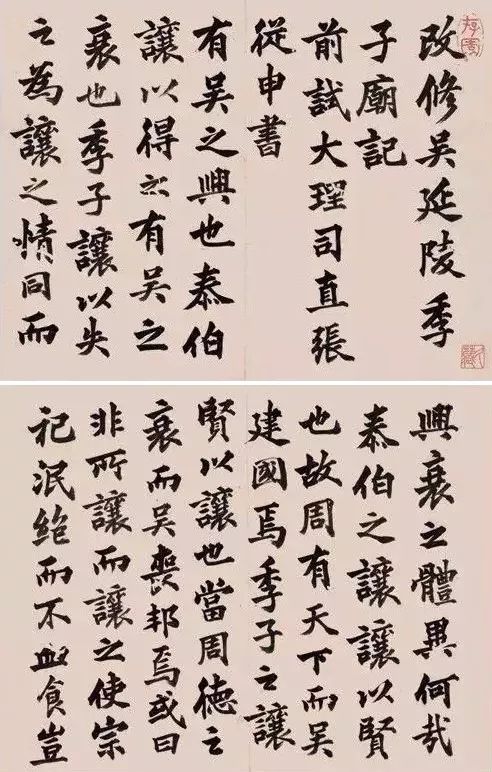 改修吳延陵季
子廟記
前試大理司直張
從申書
有吳之興也泰伯
讓以得之有吳之
衰也季子讓以失
之為讓之情同而
興衰之體異何哉
泰伯之讓讓以賢
也故周有天下而吳
建國焉季子之讓
賢以讓也當周德之
衰而吳喪邦焉或曰
非所讓而讓之使宗
祀泯絕而不血食豈